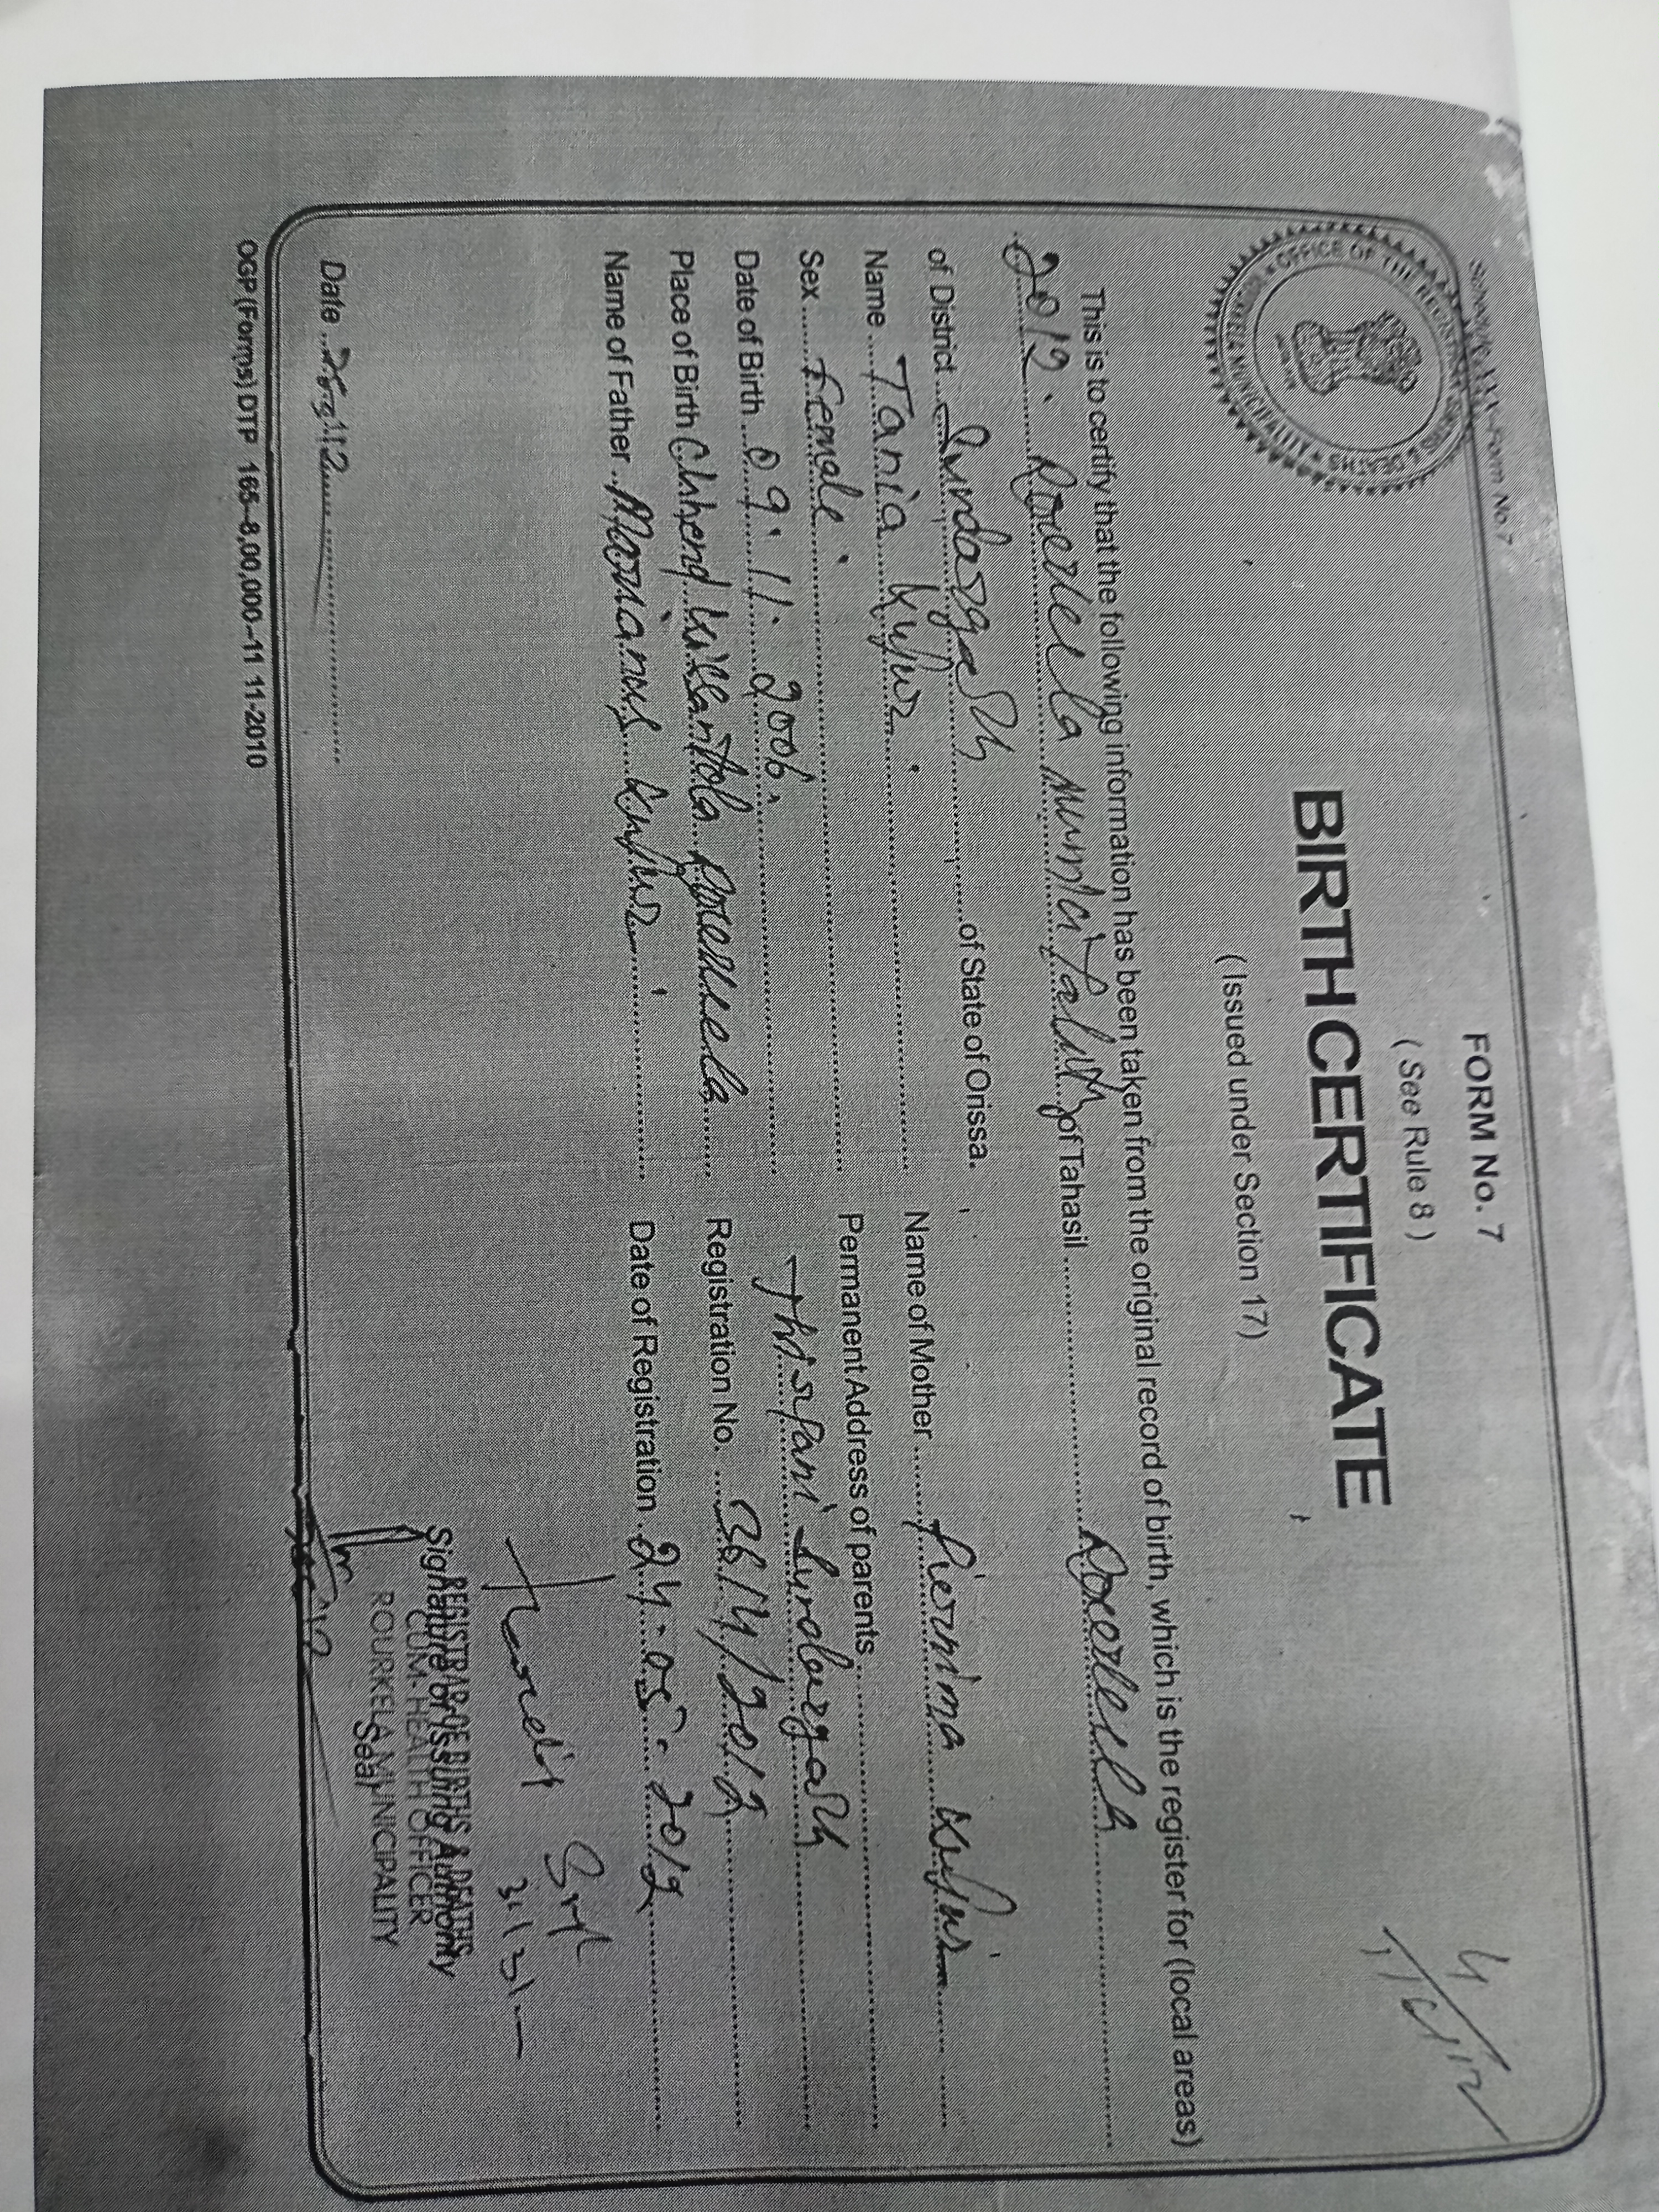 Schedule XXX—Form No. 7
FORM No. 7
( See Rule 8 )
BIRTH CERTIFICATE
( Issued under Section 17)
OFFICE OF THE REGISTRAR BIRTHS & DEATHS
This is to certify that the following information has been taken from the original record of birth, which is the register for (local areas)
2012. Rourkela Municipality of Tahasil Rourkela
of District Sundargarh of State of Orissa.
Name Tania Kujur
Sex Female
Date of Birth 09.11.2006
Place of Birth Chhend Killantola Rourkela
Name of Father Marianus Kujur
Name of Mother Purnima Kujur
Permanent Address of parents
Sundargarh
Registration No. 3614/2012
Date of Registration 24.05.2012
Date
Signature of Issuing Authority
REGISTRAR OF BIRTHS & DEATHS
CUM-HEALTH OFFICER
ROURKELA MUNICIPALITY
Seal
OGP (Forms) DTP 165–8,00,000–11 11-2010